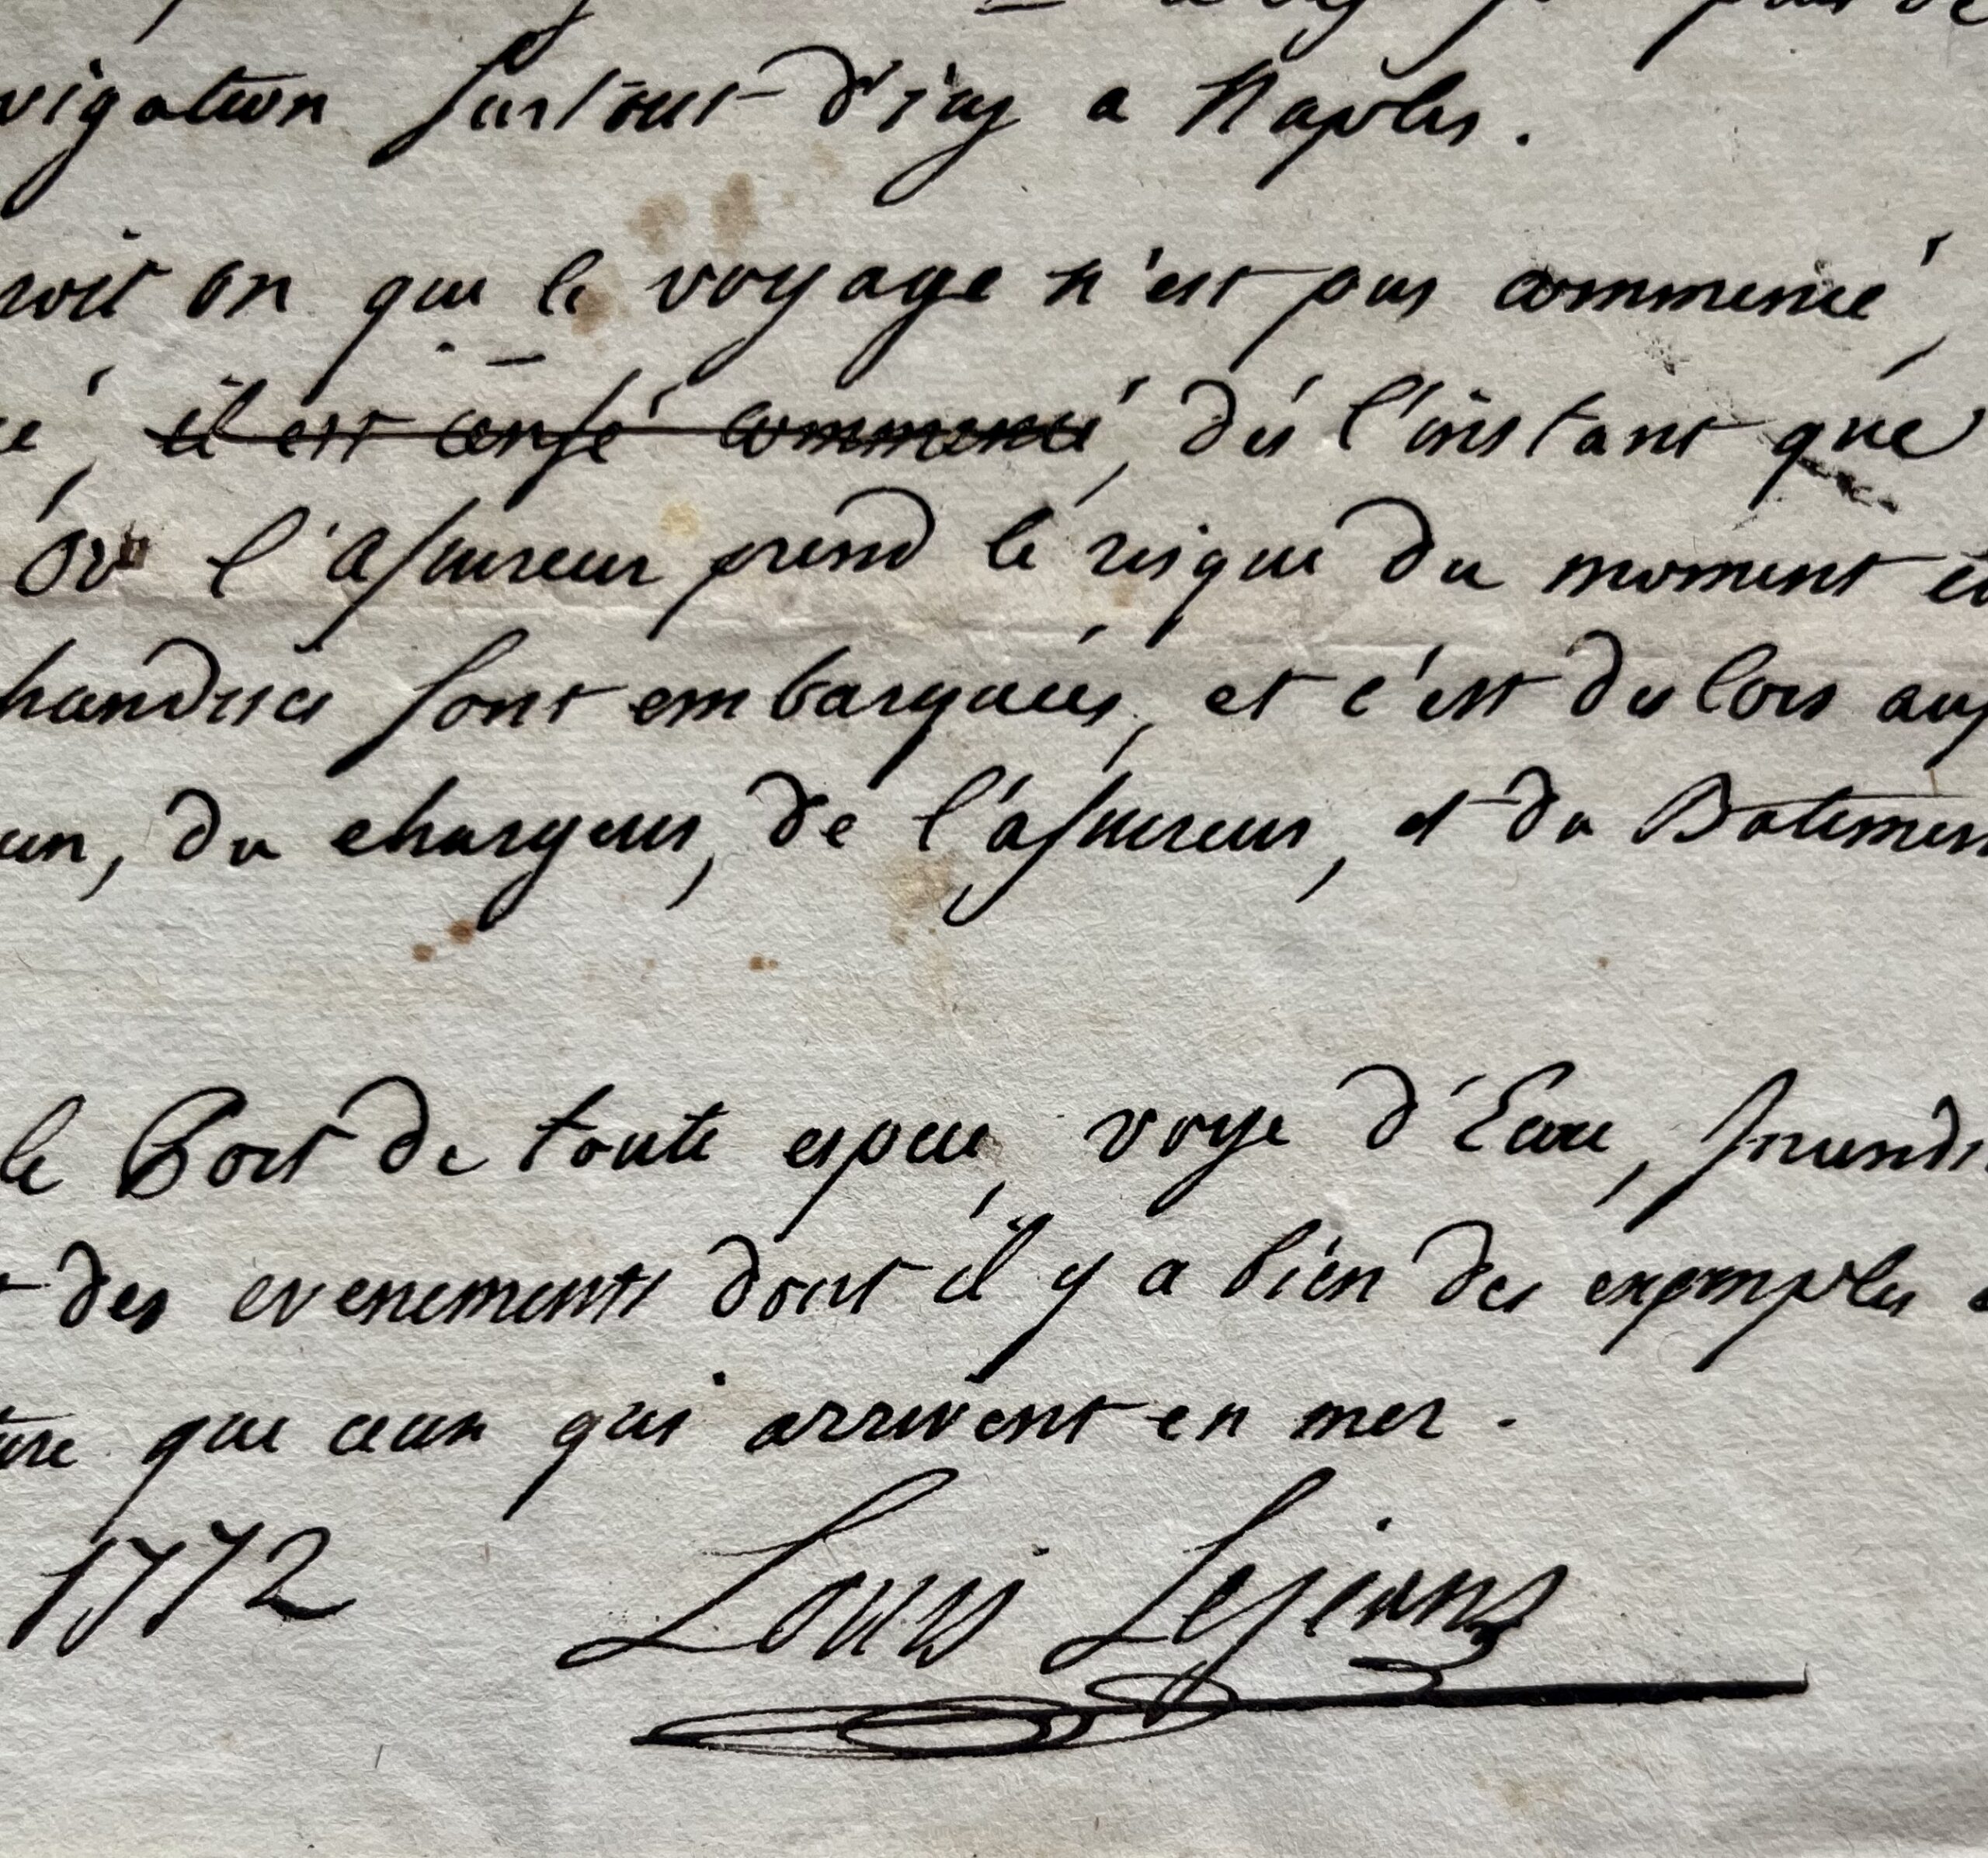 vigation surtout d'icy a Naples.
roit on que le voyage n'est pas commencé,
cé, il est censé commencé, dés l'instant que
Or l'assureur prend le risque du moment
handises sont embarquées, et c'est des lors
un, du chargeur, de l'assureur, et du Batimen
le Port de toute espece, voye d'Eau, Incendi
des evenements dont il y a bien des exemples
ure que ceux qui arrivent en mer.
1772 Louis Lejeans